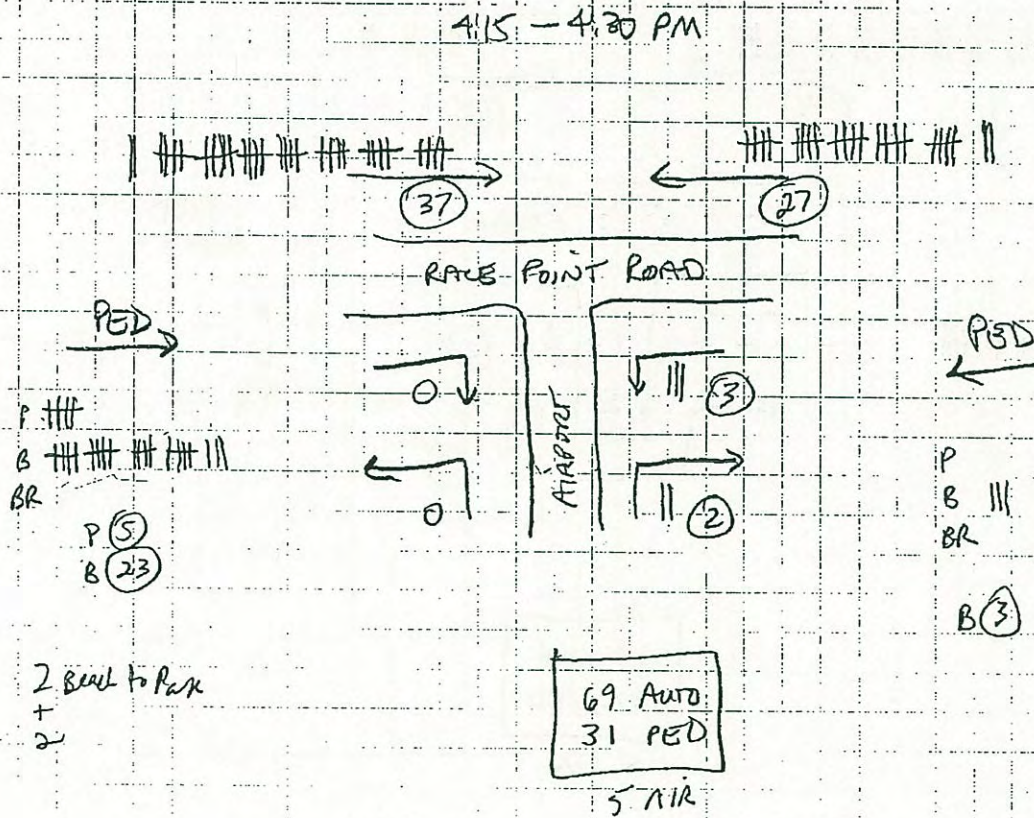 4:15 – 4:30 PM
37
27
RACE POINT ROAD
PED
PED
0
3
AIRPORT
0
2
P
B
BR
P 5
B 23
P
B
BR
B 3
2 Beach to Park
+
2
69 AUTO
31 PED
5 AIR